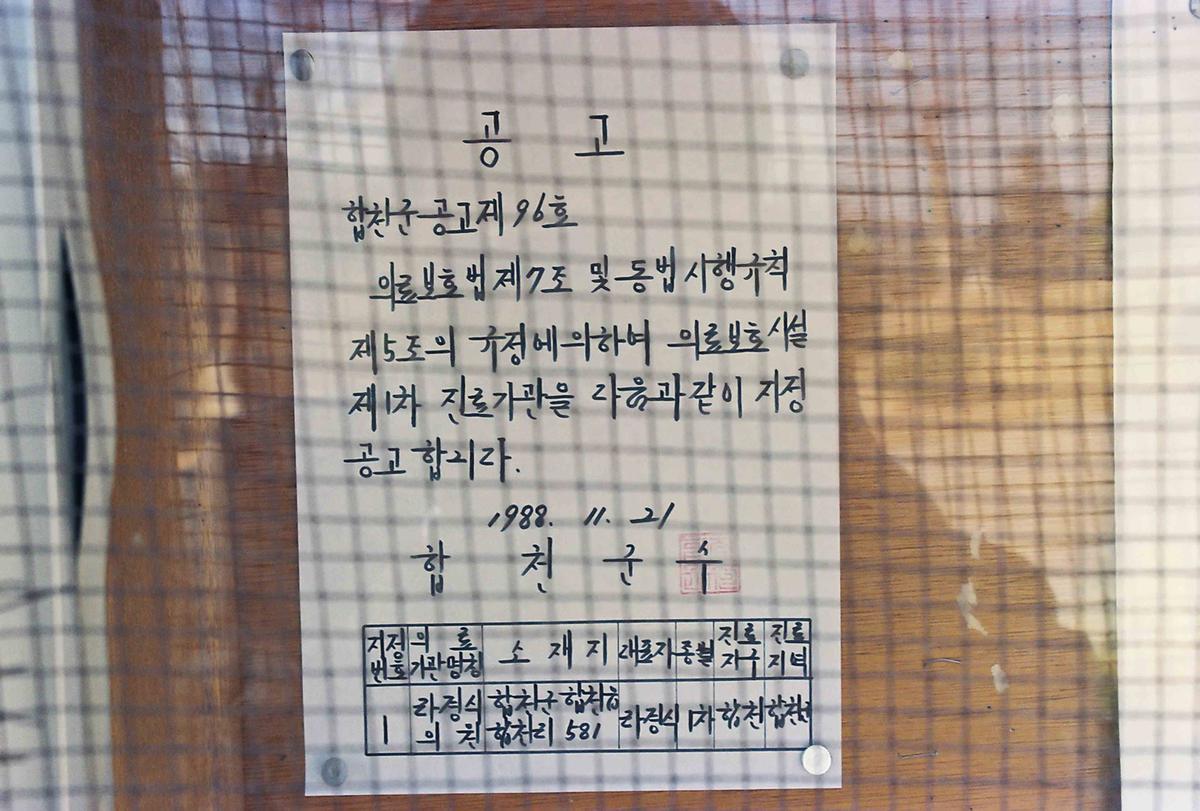 공 고
합천군공고제96호
의료보호법제7조 및 동법시행규칙
제5조의 규정에의하여 의료보호시설
제1차 진료기관을 다음과같이 지정
공고합니다.
1988. 11. 21
합 천 군 수
지정 의 료 소 재 지 대표자 종별 진료 진료
번호 기관명칭 지구 지역
1 라정식 합천군 합천읍 라정식 1차 합천 합천
의 원 합천리 581